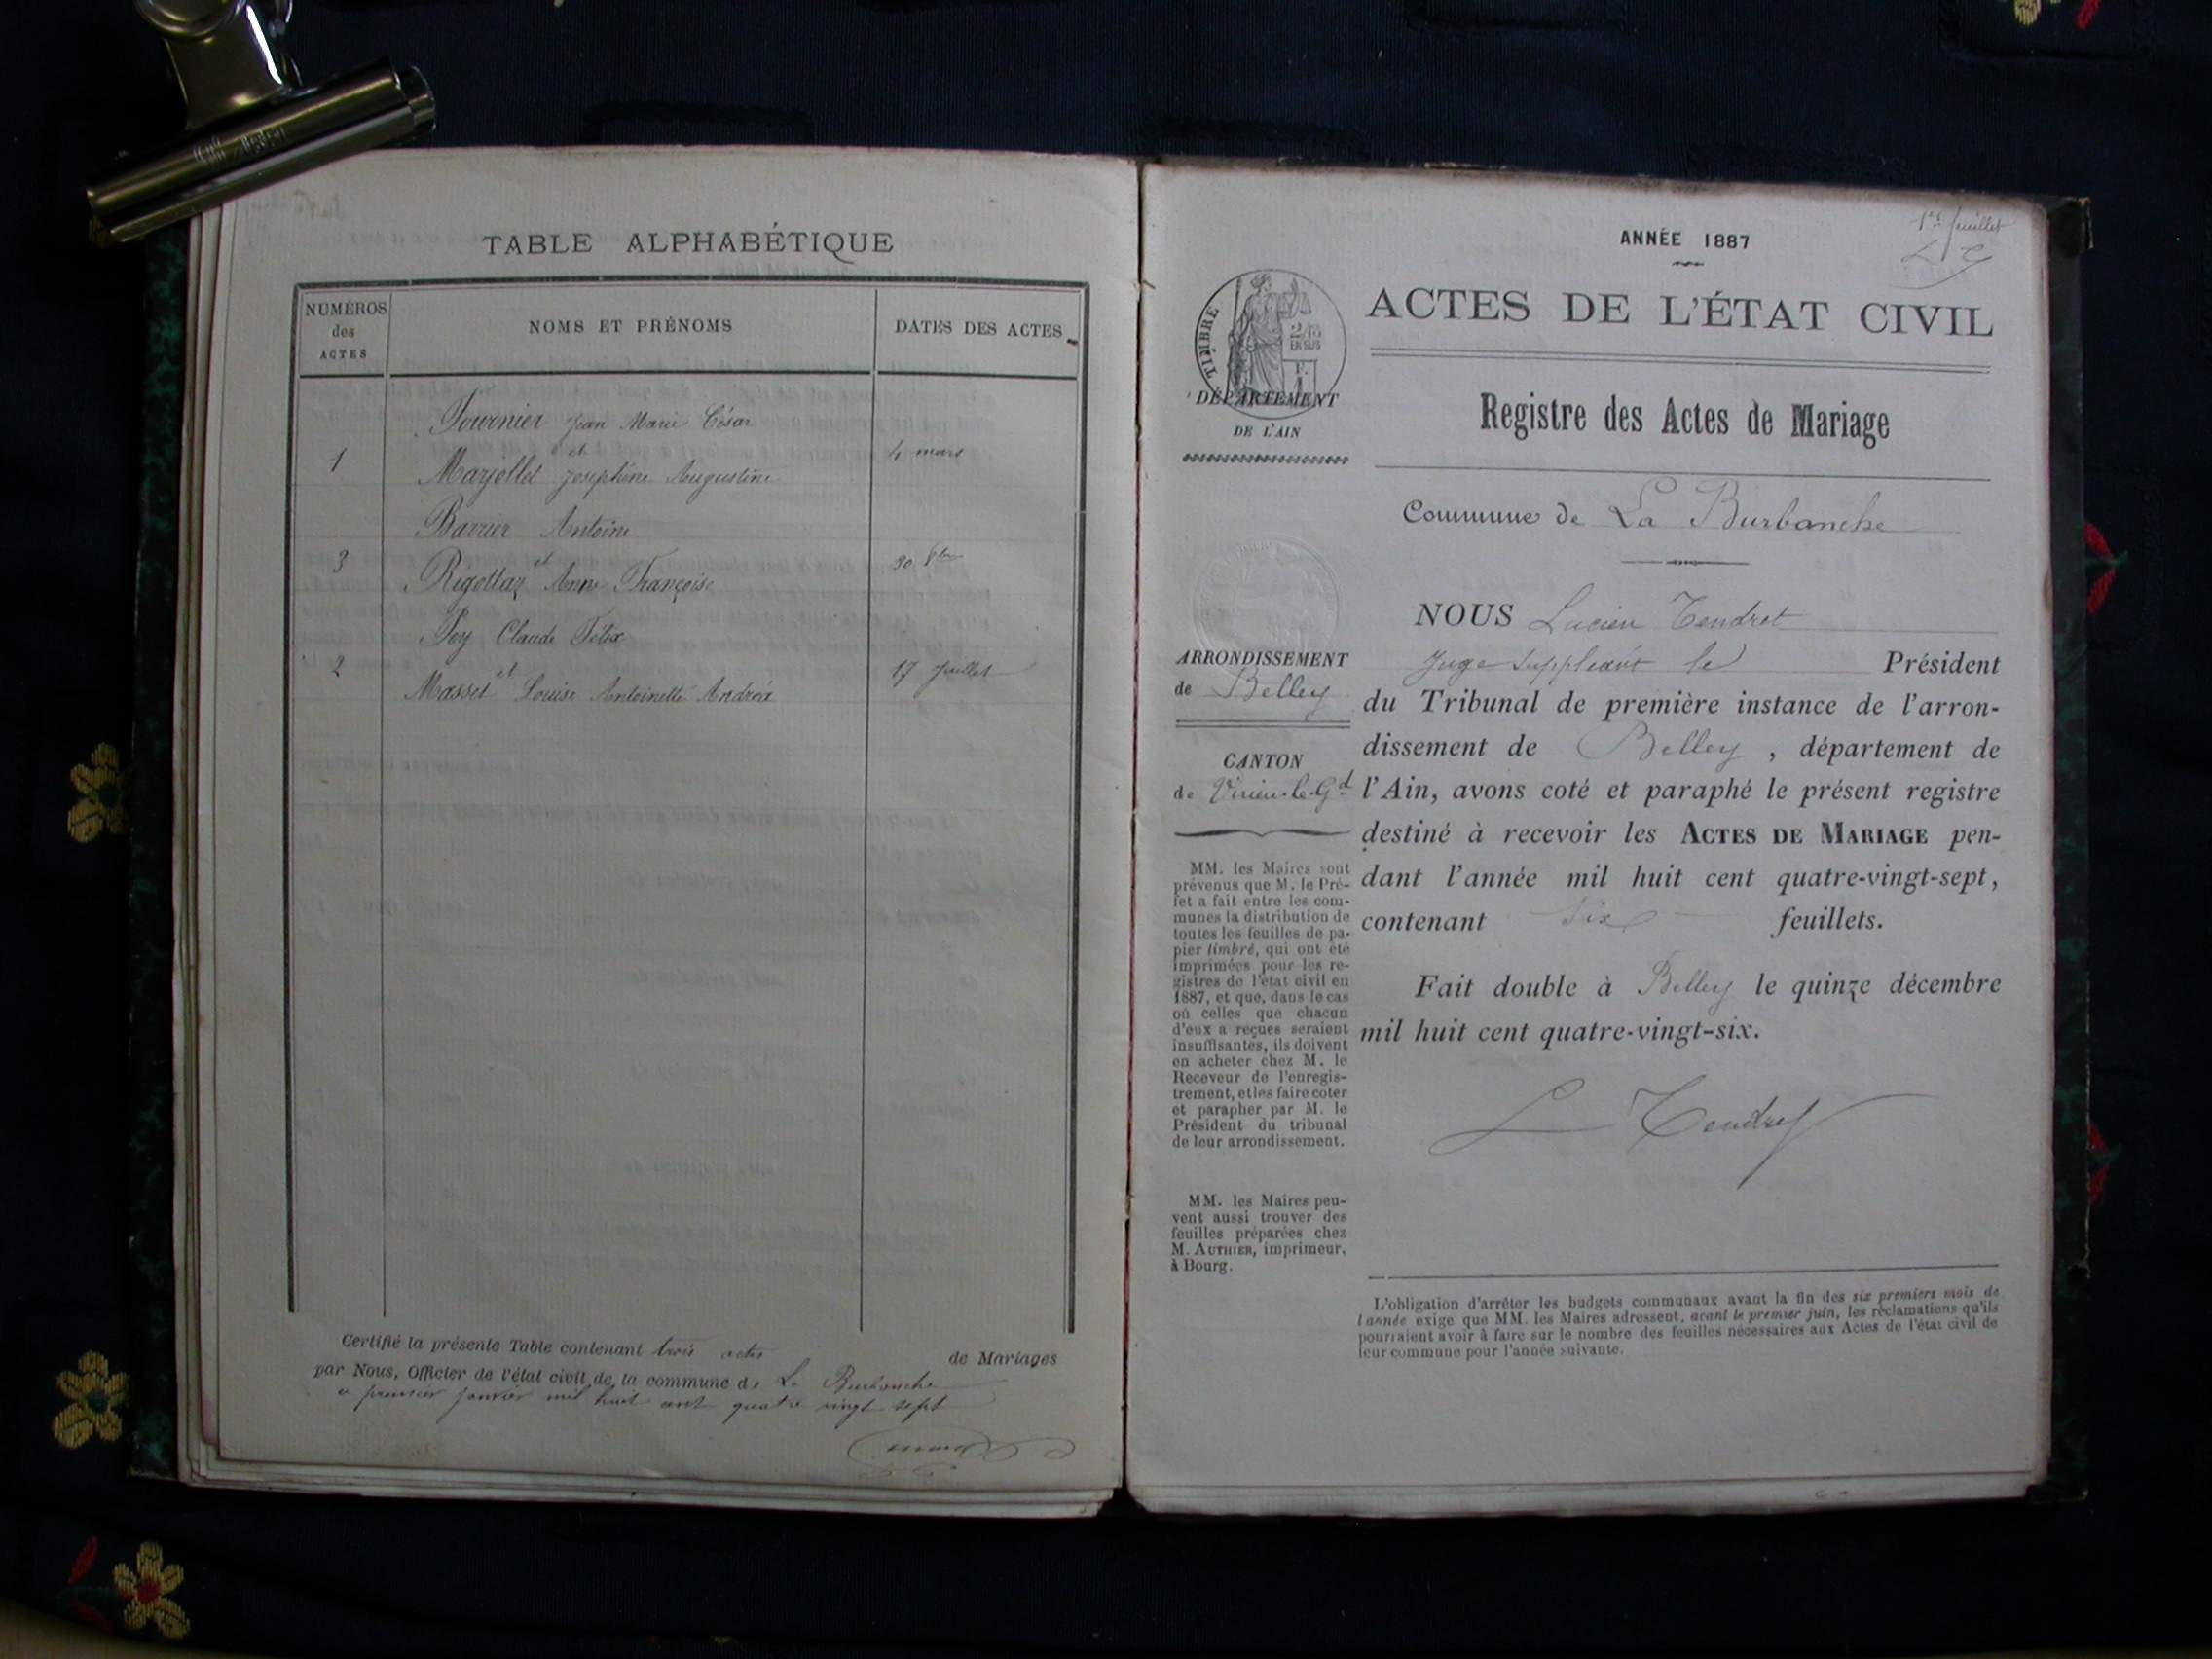 TABLE ALPHABÉTIQUE
NUMÉROS
des
ACTES
NOMS ET PRÉNOMS
DATES DES ACTES
Fournier Jean Marie César
1 et 4 mars
Marjollet Joséphine Augustine
Barrier Antoine
3 et 30 8bre
Rigottaz Anne Françoise
Fey Claude Félix
2 et 17 Juillet
Masset Louise Antoinette Andréa
Certifié la présente Table contenant trois actes de Mariages
par Nous, Officier de l'état civil de la commune de La Burbanche
ce premier janvier mil huit cent quatre vingt sept
1er feuillet
LT
ANNÉE 1887
TIMBRE
2/10
EN SUS
DÉPARTEMENT
DE L'AIN
ACTES DE L'ÉTAT CIVIL
Registre des Actes de Mariage
Commune de La Burbanche
ARRONDISSEMENT
de Belley
CANTON
de Virieu-le-Gd
MM. les Maires sont
prévenus que M. le Pré-
fet a fait entre les com-
munes la distribution de
toutes les feuilles de pa-
pier timbré, qui ont été
imprimées pour les re-
gistres de l'état civil en
1887, et que, dans le cas
où celles que chacun
d'eux a reçues seraient
insuffisantes, ils doivent
en acheter chez M. le
Receveur de l'enregis-
trement, et les faire coter
et parapher par M. le
Président du tribunal
de leur arrondissement.
MM. les Maires peu-
vent aussi trouver des
feuilles préparées chez
M. AUTHIER, imprimeur,
à Bourg.
NOUS Lucien Tendret
Juge suppléant le Président
du Tribunal de première instance de l'arron-
dissement de Belley, département de
l'Ain, avons coté et paraphé le présent registre
destiné à recevoir les ACTES DE MARIAGE pen-
dant l'année mil huit cent quatre-vingt-sept,
contenant six feuillets.
Fait double à Belley le quinze décembre
mil huit cent quatre-vingt-six.
L Tendret
L'obligation d'arrêter les budgets communaux avant la fin des six premiers mois de
l'année exige que MM. les Maires adressent, avant le premier juin, les réclamations qu'ils
pourraient avoir à faire sur le nombre des feuilles nécessaires aux Actes de l'état civil de
leur commune pour l'année suivante.